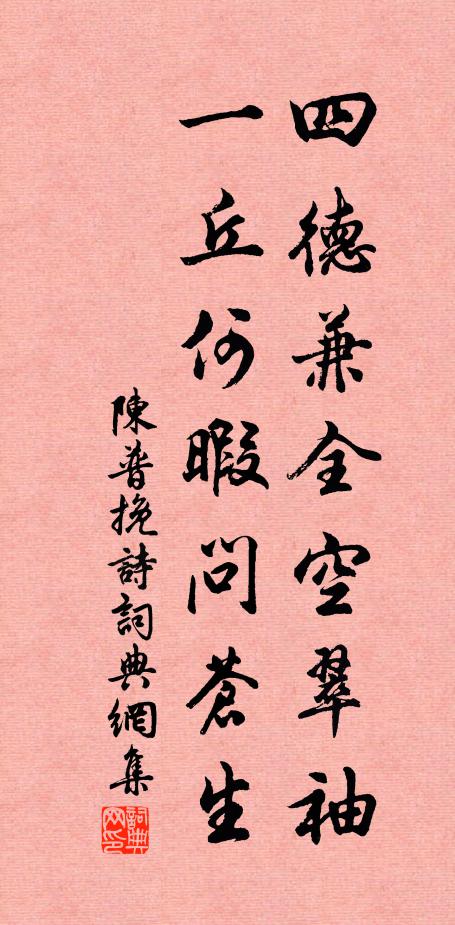 四德兼全空翠袖
一丘何暇問蒼生
陳普挽詩詞典網集
詞典网印